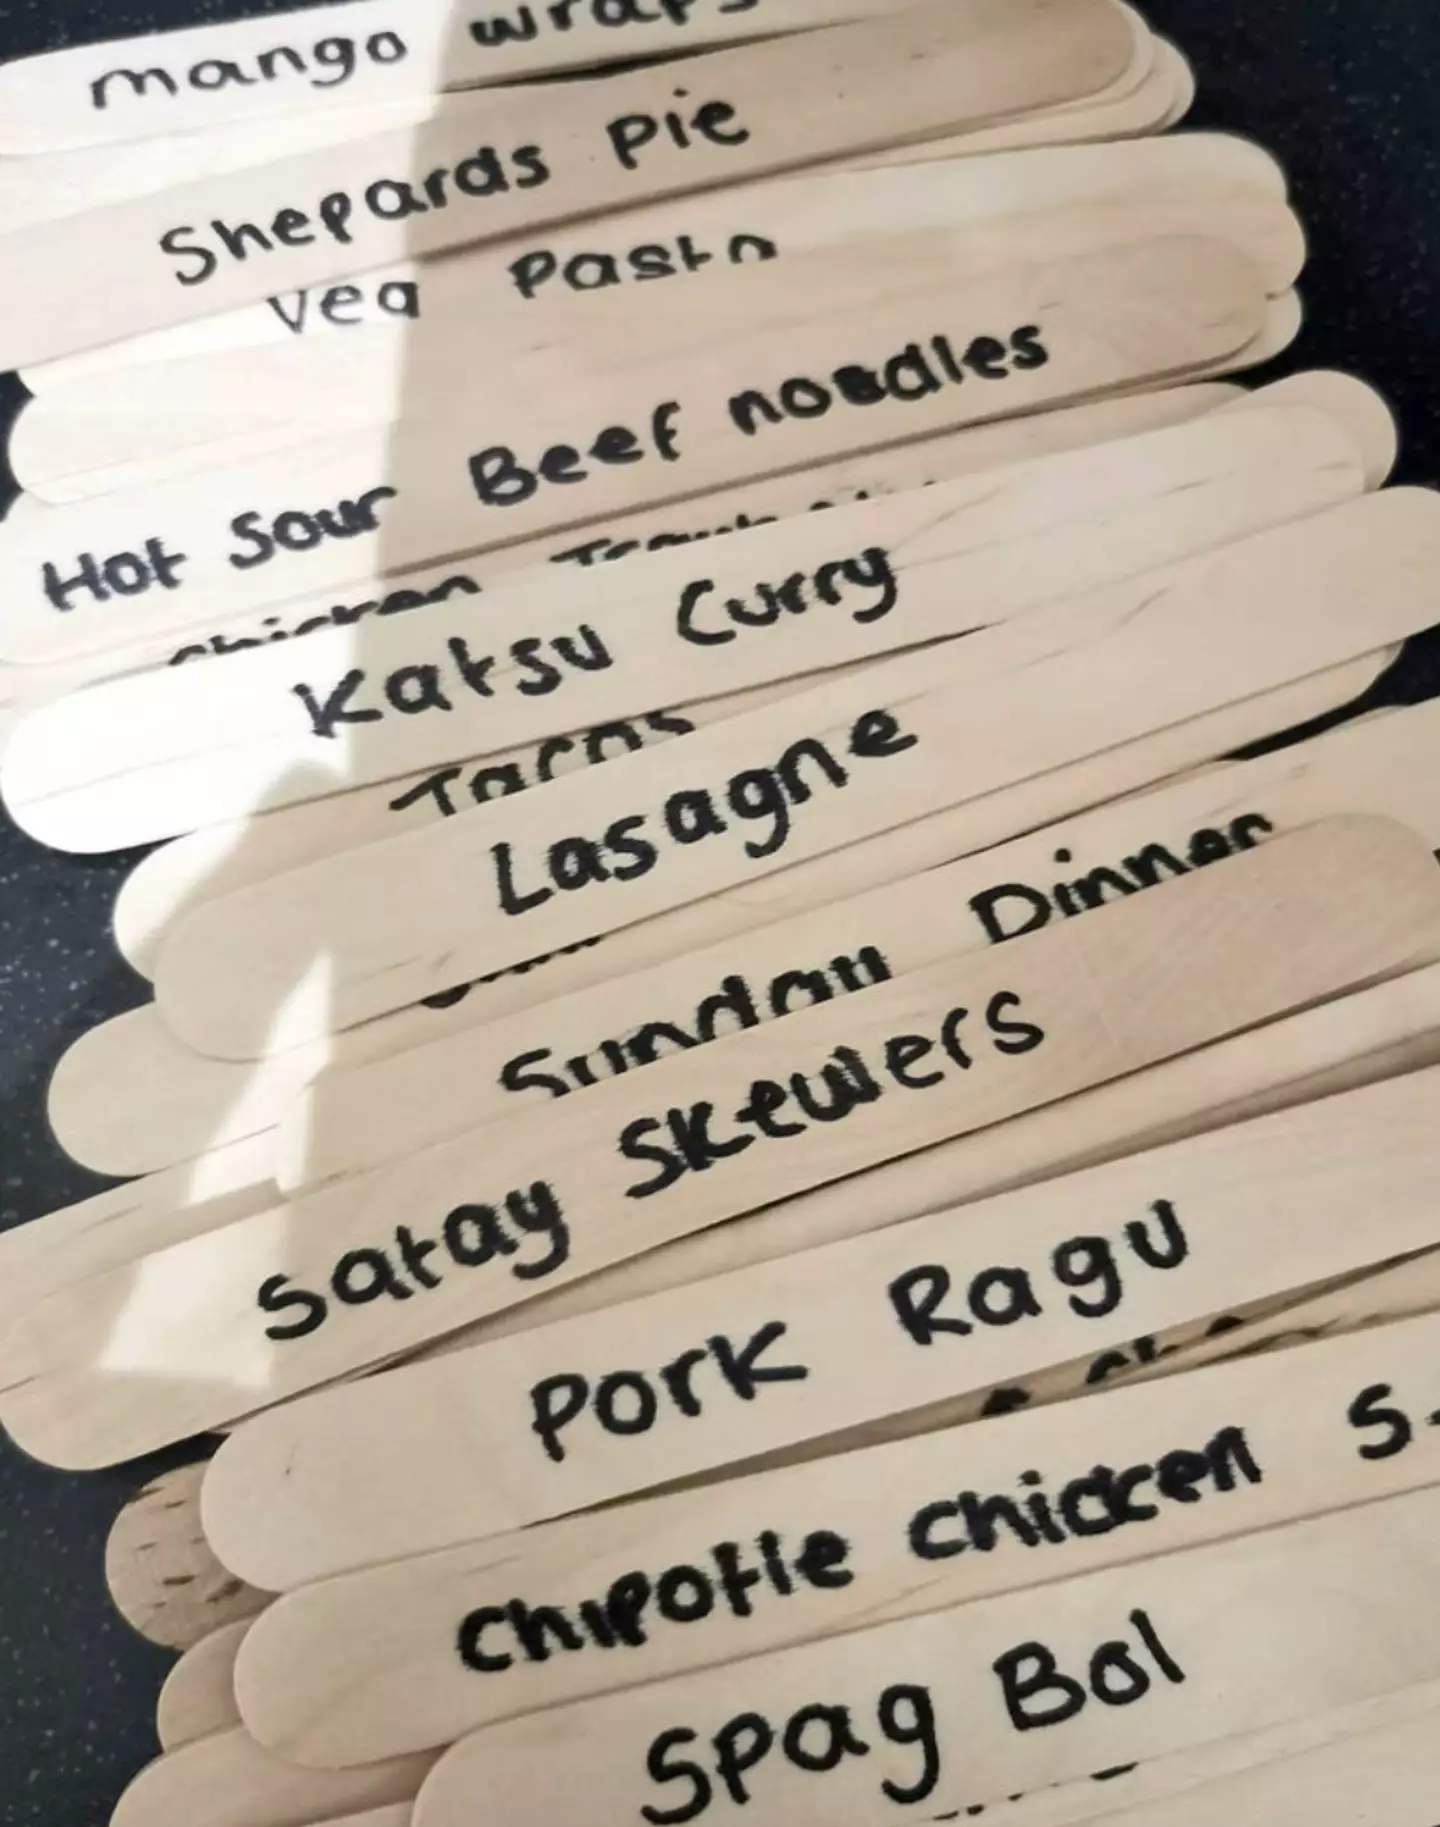 mango wraps
Shepards Pie
Veg Pasta
Hot Sour Beef noodles
Chicken
Katsu Curry
Tacos
Lasagne
Sunday Dinner
Satay Skewers
Pork Ragu
Chipotle Chicken S
Spag Bol